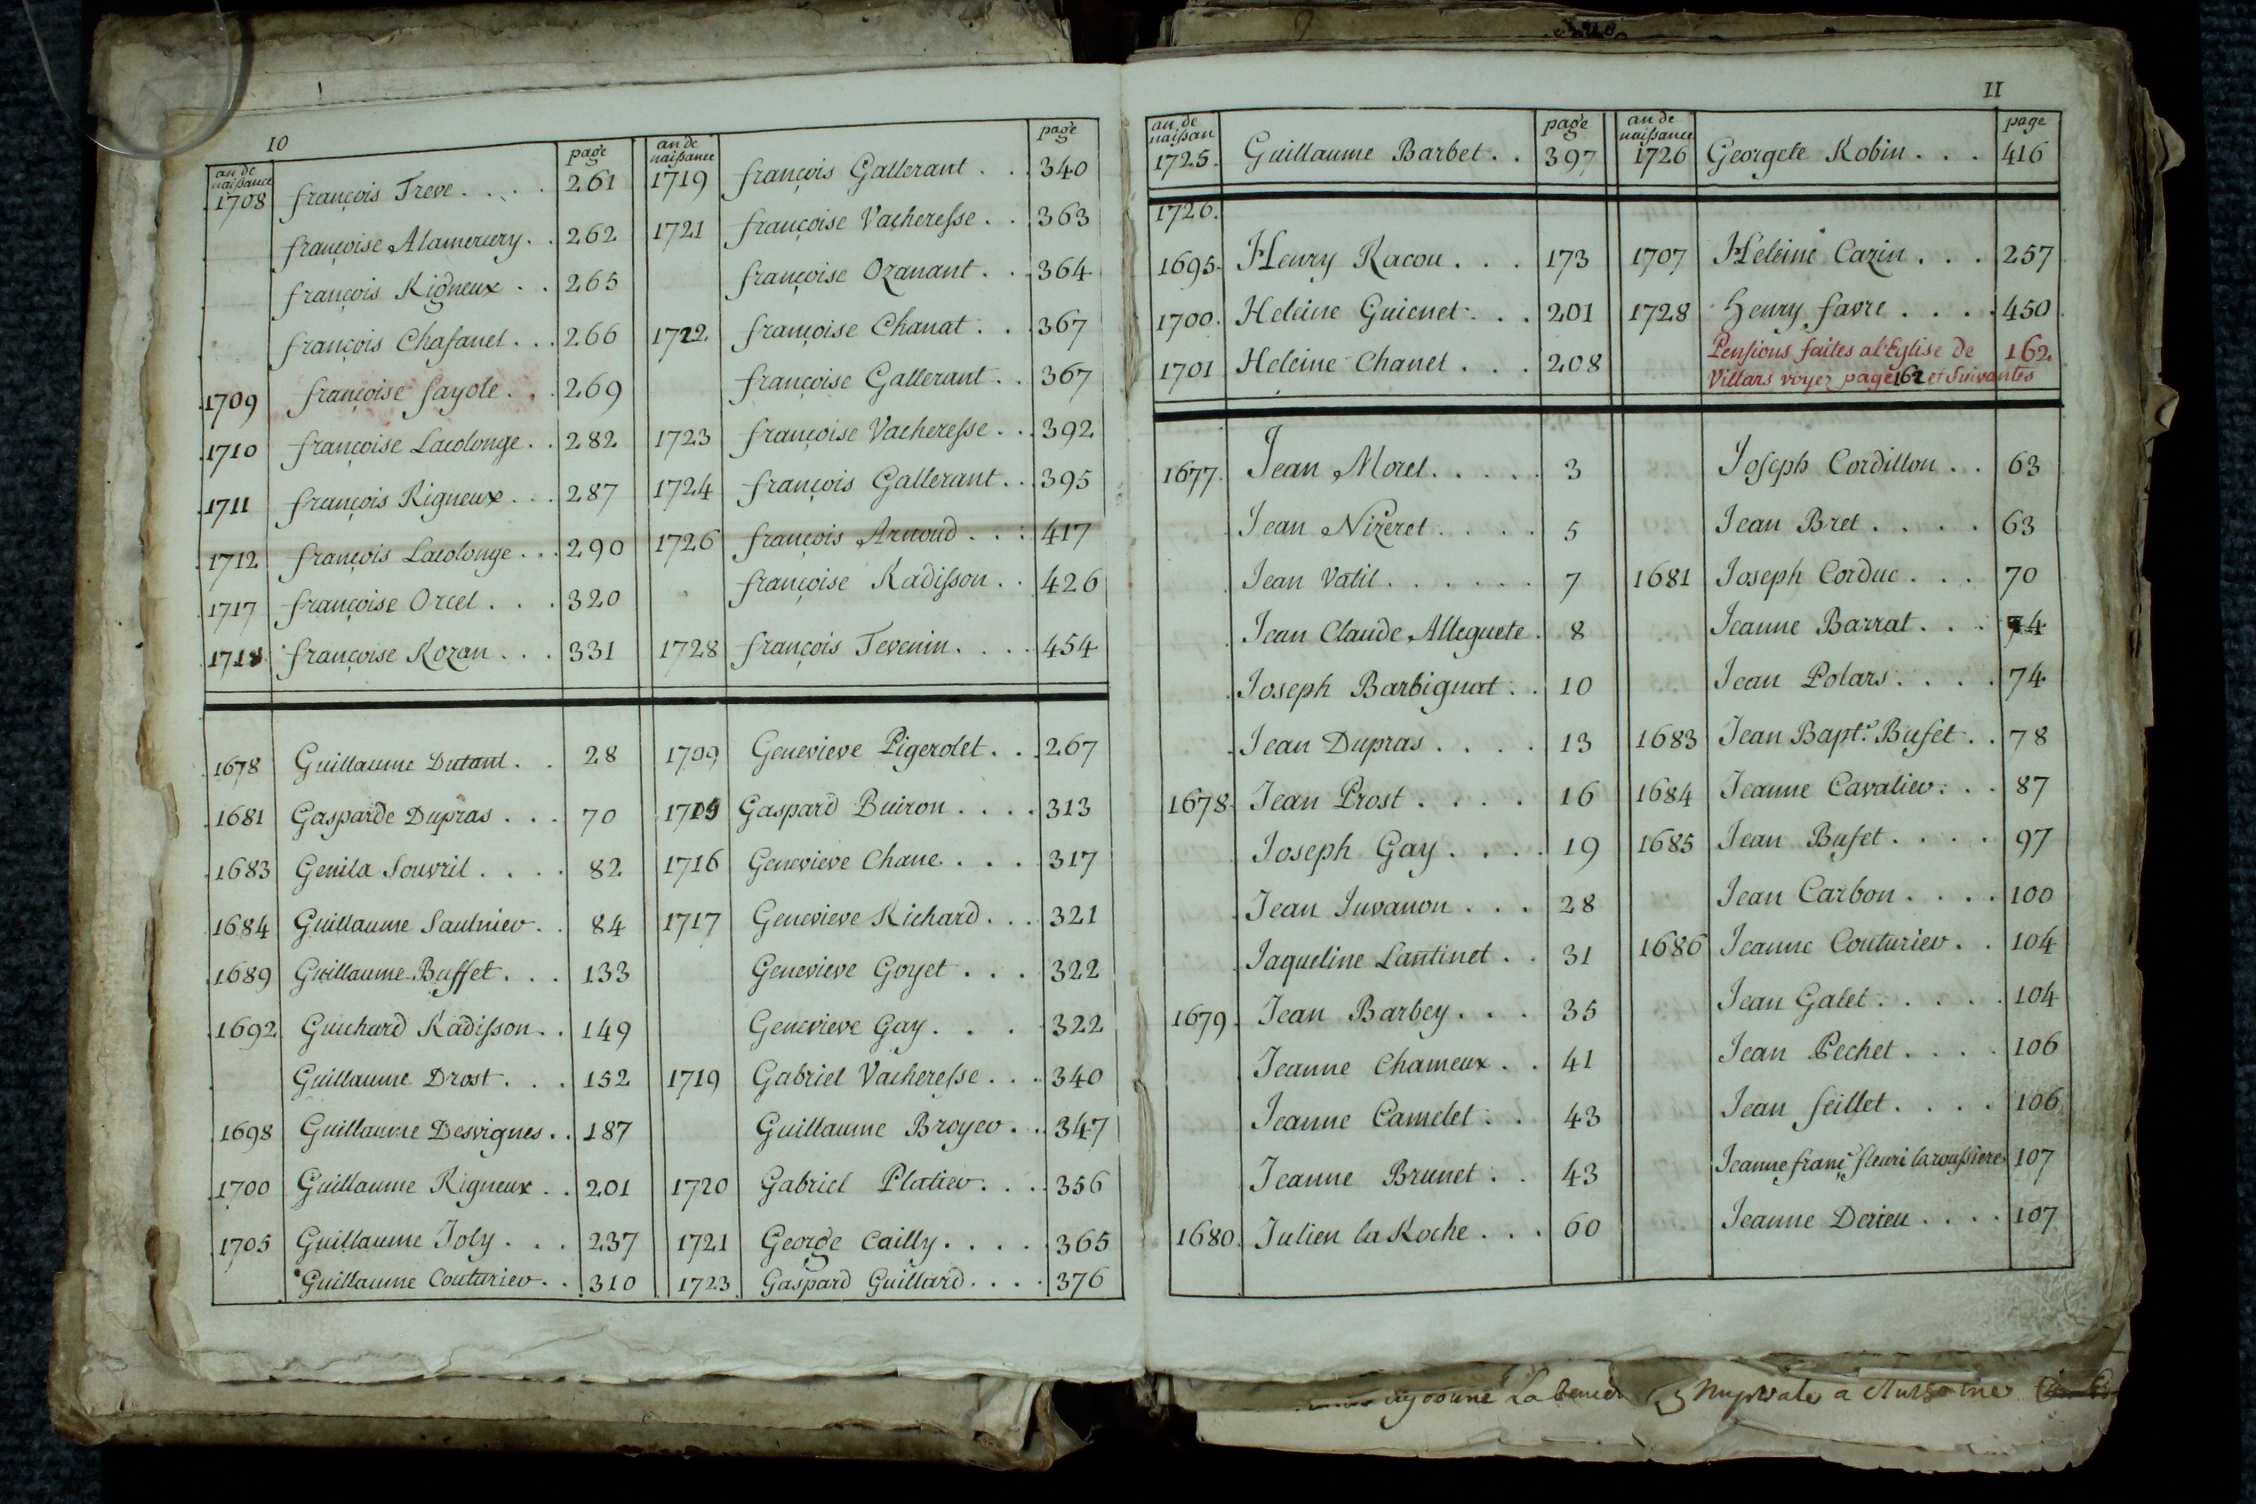 10
an de naissance page
1708 françois Treve.... 261
françoise Alamercery.. 262
françois Rigneux.. 265
françois Chasanel... 266
1709 françoise fayole... 269
1710 françoise Lacolonge.. 282
1711 françois Rigneux... 287
1712 françois Lacolonge... 290
1717 françoise Orcel.... 320
1718 françoise Rozan... 331
1678 Guillaume Dutant.. 28
1681 Gasparde Dupras... 70
1683 Genila Souvril.... 82
1684 Guillaume Saulnier.. 84
1689 Guillaume Buffet... 133
1692 Guichard Radisson.. 149
Guillaume Drost... 152
1698 Guillaume Desvignes.. 187
1700 Guillaume Rigneux.. 201
1705 Guillaume Joly... 237
Guillaume Couturier.. 310
an de naissance page
1719 françois Gallerant... 340
1721 françoise Vacheresse.. 363
françoise Ozanant... 364
1722 françoise Chanat... 367
françoise Gallerant.. 367
1723 françoise Vacheresse... 392
1724 françois Gallerant.. 395
1726 françois Arnoud... 417
françoise Radisson.. 426
1728 françois Tevenin.... 454
1709 Genevieve Pigerolet... 267
Gaspard Buiron.... 313
1716 Genevieve Chane.... 317
1717 Genevieve Richard... 321
Genevieve Goyet... 322
Genevieve Gay.... 322
1719 Gabriel Vacheresse... 340
Guillaume Broyer... 347
1720 Gabriel Platier.... 356
1721 George Cailly..... 365
1723 Gaspard Guillard.... 376
11
an de naissan page
1725. Guillaume Barbet.. 397
1726.
1695. Henry Racou... 173
1700. Heleine Guienet... 201
1701 Heleine Chanel... 208
1677. Jean Morel..... 3
Jean Nizeret.... 5
Jean Vatil...... 7
Jean Claude Alleguete. 8
Joseph Barbignat.. 10
Jean Dupras.... 13
1678. Jean Prost.... 16
Joseph Gay.... 19
Jean Juvanon... 28
Jaqueline Lantinet.. 31
1679. Jean Barbey... 35
Jeanne Chameux.. 41
Jeanne Camelet.. 43
Jeanne Brunet.. 43
1680. Julien la Roche... 60
an de naissance page
1726 Georgete Robin... 416
1707 Heleine Cazin... 257
1728 Henry favre.... 450
Pensions faites al'Eglise de 162
Villars voyez page 162 et Suivantes
Joseph Cordillon.. 63
Jean Bret.... 63
1681 Joseph Corduc... 70
Jeanne Barrat... 74
Jean Polars.... 74
1683 Jean Bapt.e Bufet.. 78
1684 Jeanne Cavalier... 87
1685 Jean Bufet.... 97
Jean Carbon.... 100
1686 Jeanne Couturier.. 104
Jean Galet..... 104
Jean Pechet.... 106
Jean feillet.... 106
Jeanne franç.se fleuri laroussiere 107
Jeanne Derieu.... 107